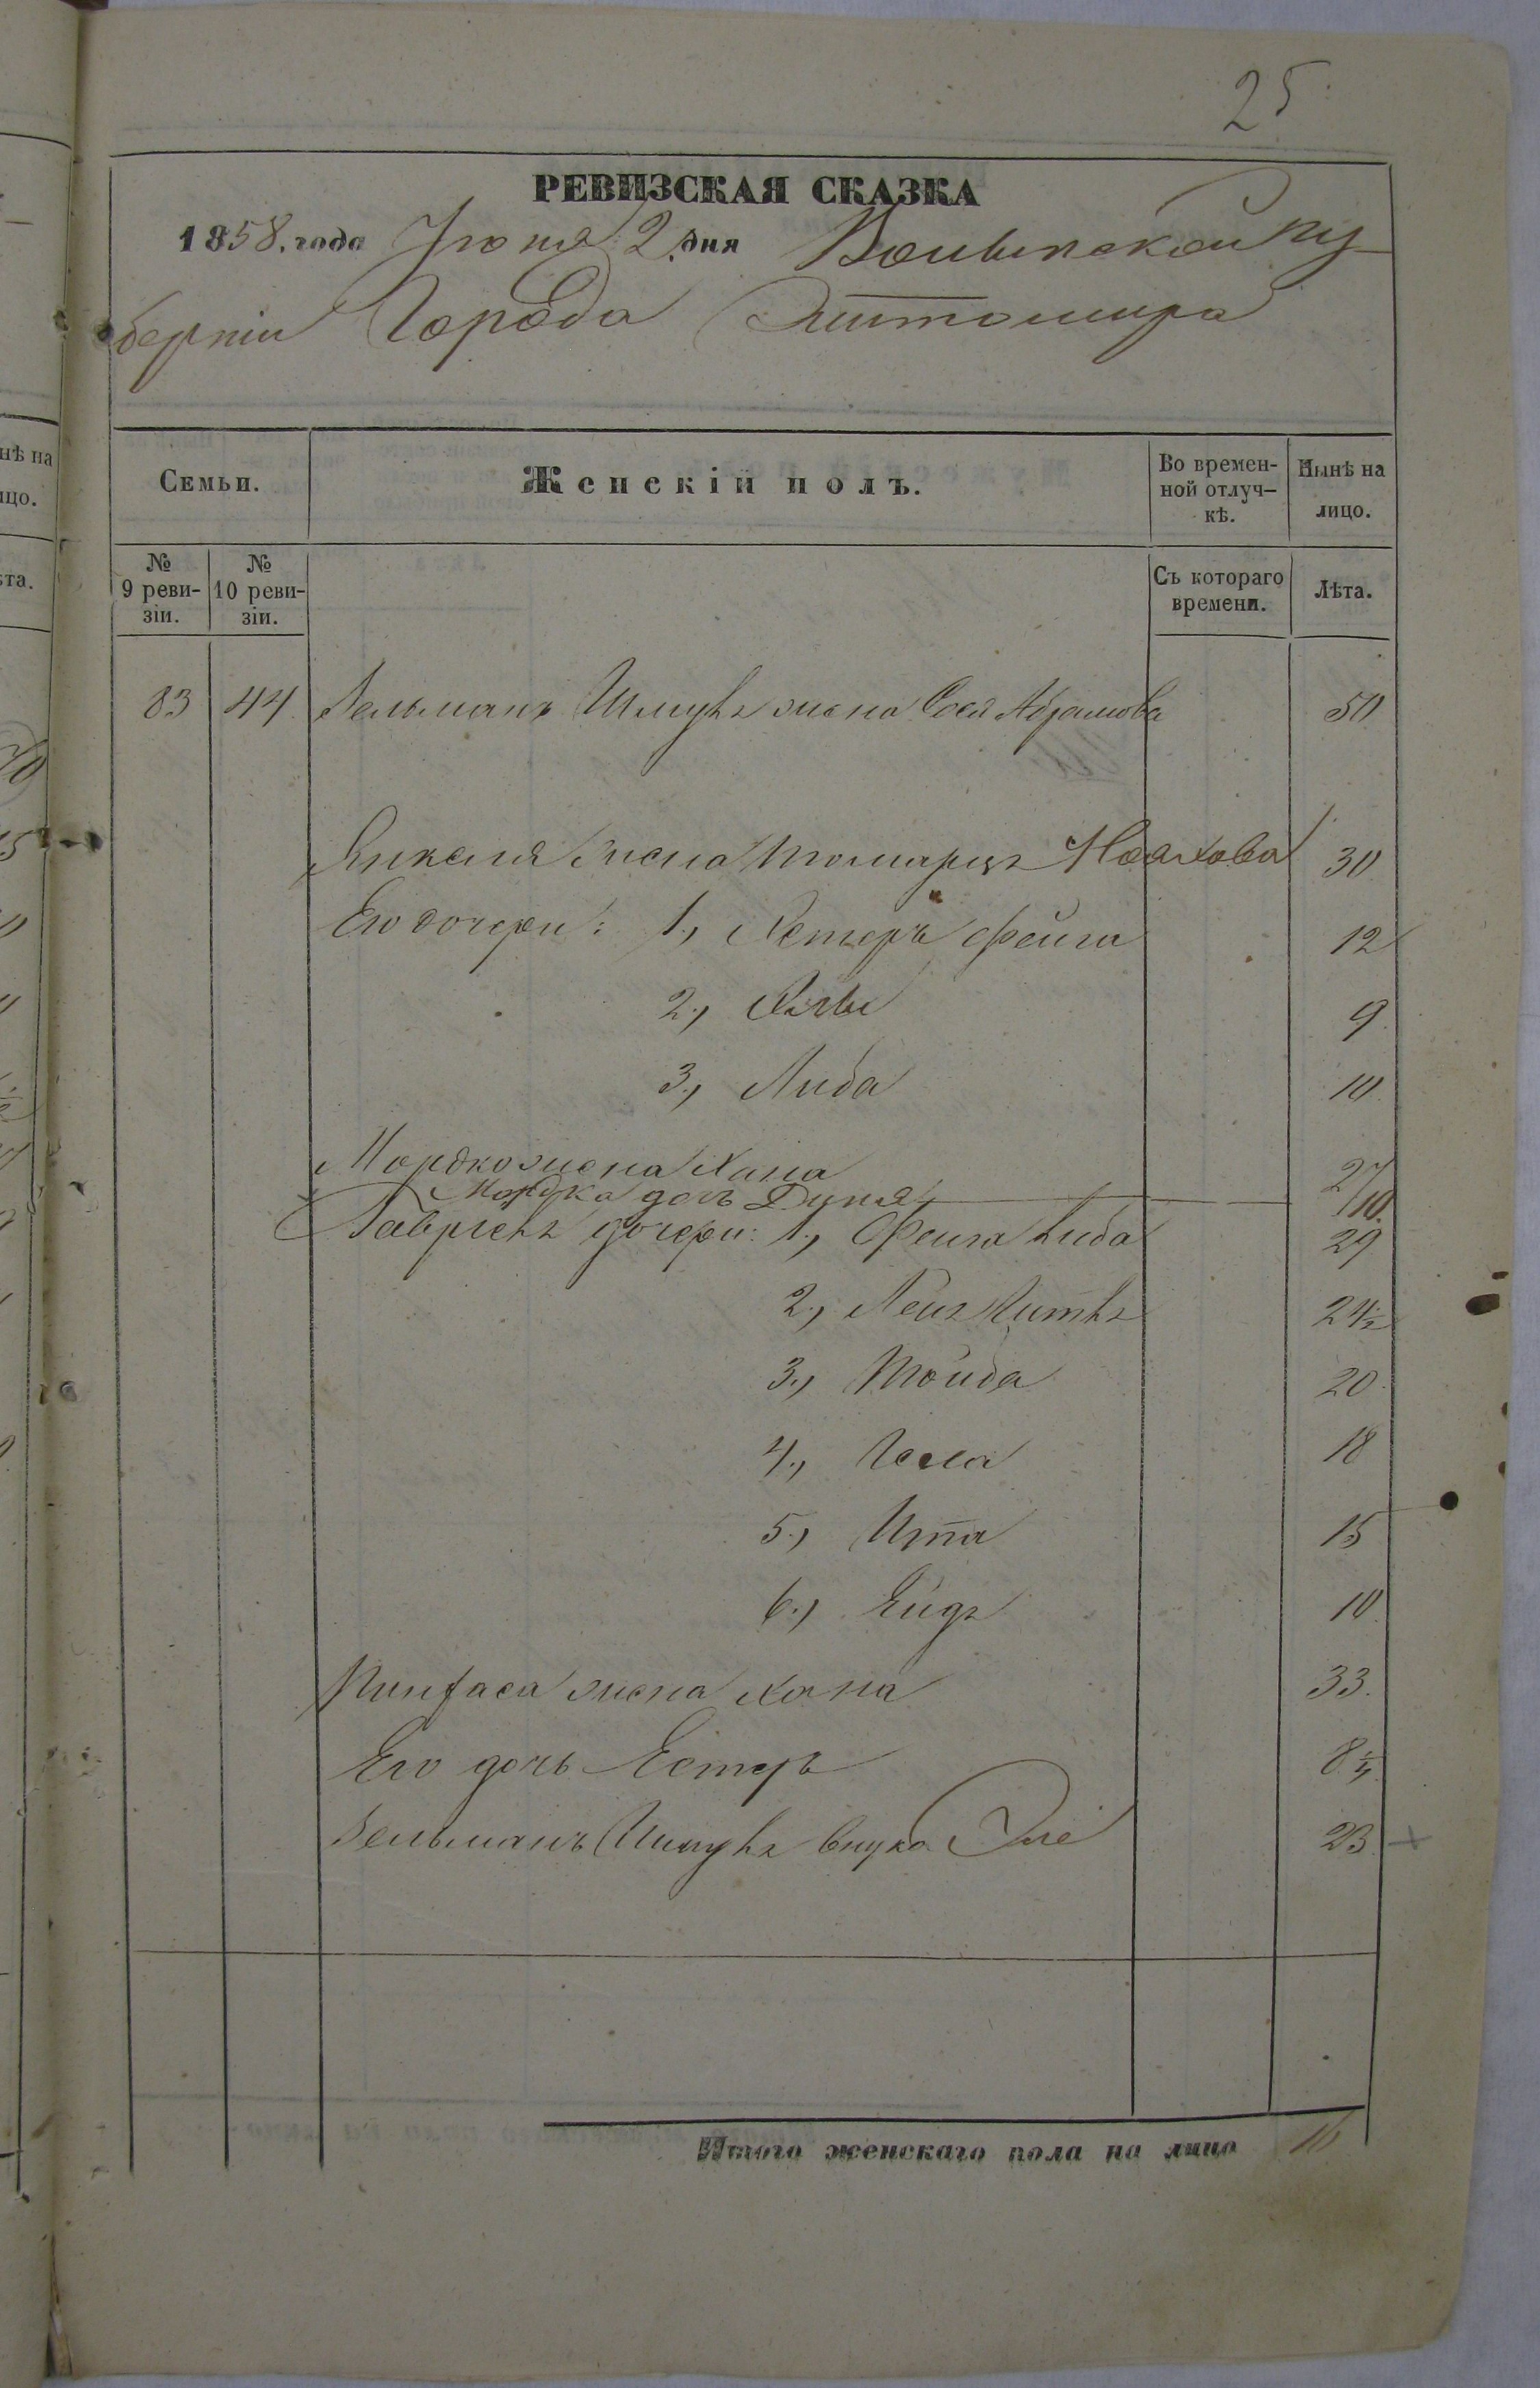 25
РЕВИЗСКАЯ СКАЗКА
1858. года Іюня 2 дня Волынской гу
берніи Города Житомира
Семьи.
Женскій полъ.
Во времен-
ной отлуч-
кѣ.
Нынѣ на
лицо.
№
9 реви-
зіи.
№
10 реви-
зіи.
Съ котораго
времени.
Лѣта.
83 44 Зельманъ Шмуль жена Сося Абрамова 50
Янкеля жена Ноахова 30
Его дочери: 1., Естеръ Фейга 12
2., 9
3., Либа 10
Мордко жена Хана 27
Мордка дочь Дуня 10
дочери: 1., Фейга Либа 29
2., 24½
3., Тойба 20
4., 18
5., Ита 15
6., 10
Пинхаса жена Хана 33.
Его дочь Естеръ 8
Зельманъ Шмуль внука 23 +
Итого женскаго пола на лицо 16
нѣ на
ицо.
ѣта.